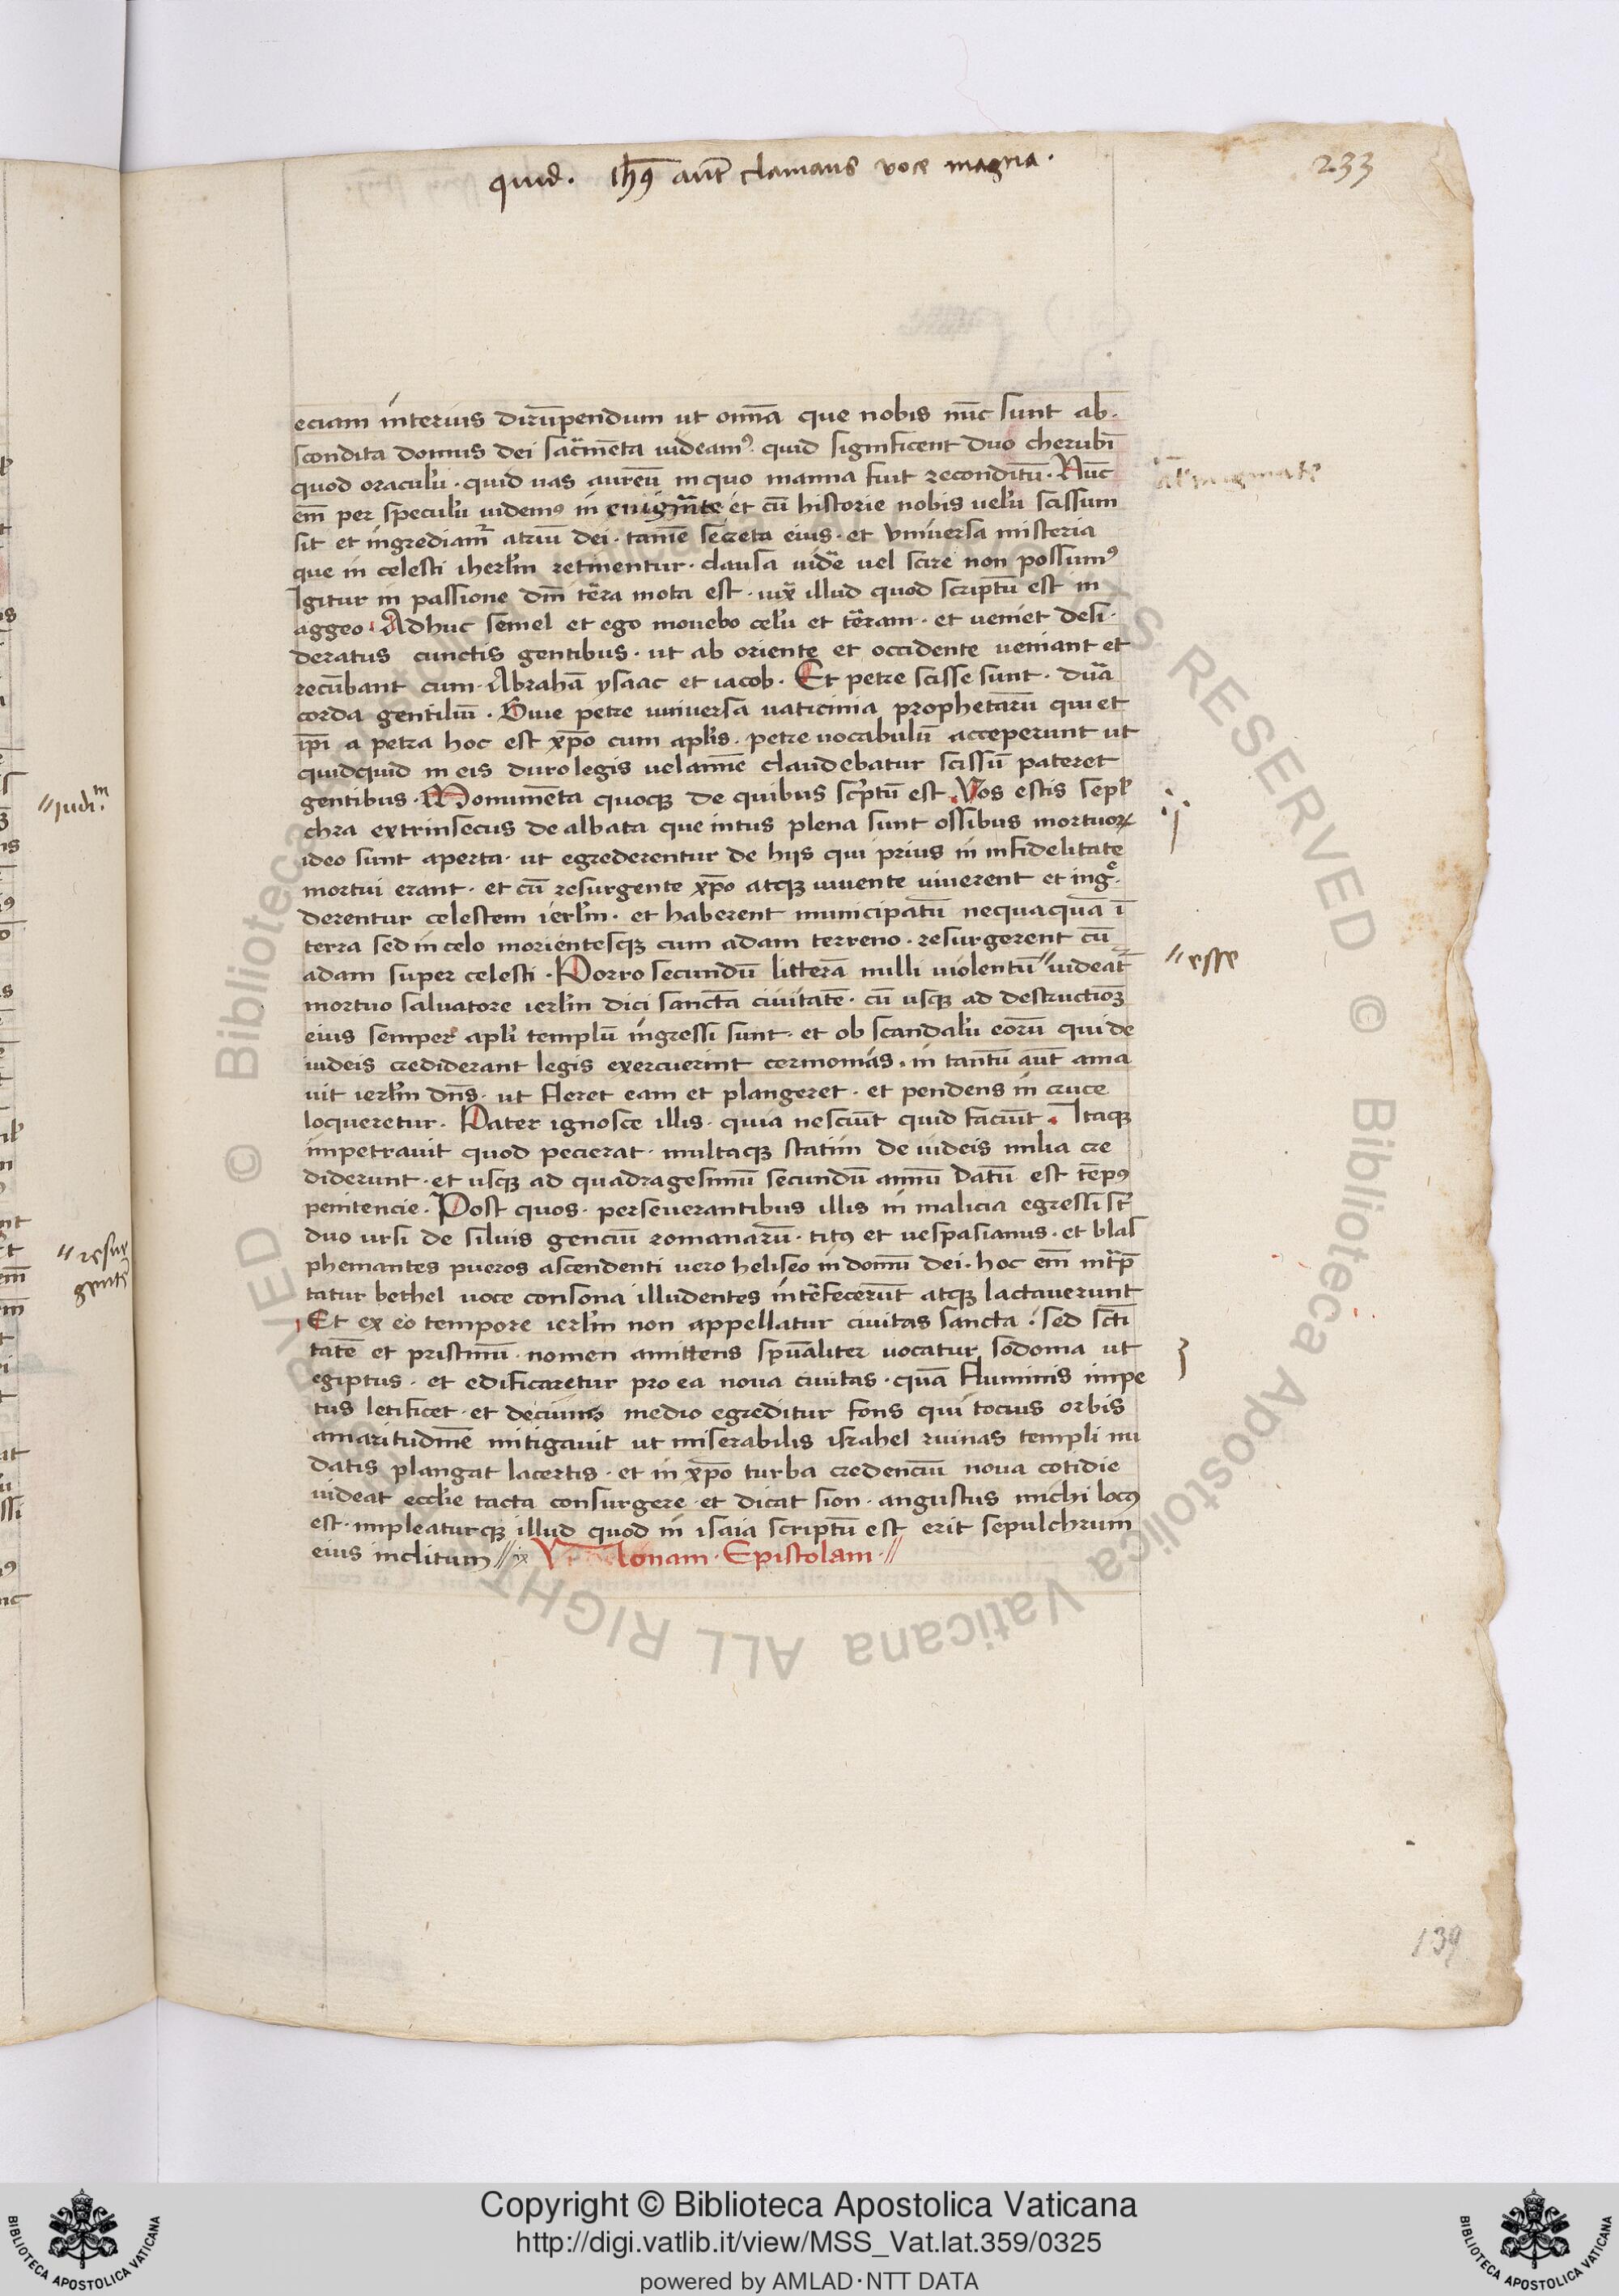 quid. Ihꝰ aut̄ clamans voce magna.
233
eciam interius dirūpendum ut om̄a que nobis nūc sunt ab-
scondita domus dei sac̄menta uideamꝰ. quid significent duo cherubī
quod oraculū. quid uas aureū in quo manna fuit reconditū. Nūc
em̄ per speculū uidemꝰ in enigm̄te et cū historie nobis uelū scissum
sit et ingrediamr̄ atriū dei. tamē secreta eius. et vniuersa misteria
que in celesti iherlm̄ retinentur. clausa uidē uel scire non possumꝰ
Igitur in passione dn̄i tēra mota est. iux̄ illud quod scriptū est in
aggeo. Adhuc semel et ego mouebo celū et tēram. et ueniet desi-
deratus cunctis gentibus. ut ab oriente et occidente ueniant et
recūbant cum. Abrahā ysaac et iacob. Et petre scisse sunt. dūa
corda gentiliū. Siue petre uniuersa uaticinia prophetarū qui et
ip̄i a petra hoc est xp̄o cum apl̄is. petre uocabulū acceperunt ut
quidquid in eis duro legis uelamine claudebatur scissū pateret
gentibus. Monumēta quoqꝫ de quibus sc̄ptū est. Vos estis sepl̄
chra extrinsecus de albata que intus plena sunt ossibus mortuoꝝ
ideo sunt aperta. ut egrederentur de hijs qui prius in infidelitate
mortui erant. et cū resurgente xp̄o atqꝫ uiuente uiuerent et ingͤ-
derentur celestem ierlm̄. et haberent municipatū nequaquā ī
terra sed in celo morientesqꝫ cum adam terreno. resurgerent cū
adam super celesti. Porro secundū litterā nulli uiolentū // uideat̄
// esse
mortuo saluatore ierlm̄ dici sanctā ciuitatē. cū usqꝫ ad destructioꝫ
eius semper apl̄i templū ingressi sunt. et ob scandalū eorū qui de
iudeis crediderant legis exercuerint cermonias. in tantū aut̄ ama
uit ierlm̄ dn̄s. ut fleret eam et plangeret. et pendens in cruce
loqueretur. Pater ignosce illis. quia nesciūt quid faciūt. Itaqꝫ
impetrauit quod pecierat. multaqꝫ statim de iudeis milia cre
diderunt. et usqꝫ ad quadragesimū secundū annū datū est tēpꝰ
penitencie. Post quos. perseuerantibus illis in malicia egressi st̄
duo ursi de siluis genciū romanarū. titꝰ et uespasianus. et blas
phemantes pueros ascendenti uero heliseo in domū dei. hoc em̄ int̄p̄
tatur bethel uoce consona illudentes int̄fecerūt atqꝫ lactauerunt
Et ex eo tempore ierlm̄ non appellatur ciuitas sancta. sed sc̄ti
tatē et pristinū. nomen amittens sp̄ualiter uocatur sodoma ut
egiptus. et edificaretur pro ea noua ciuitas. quā fluminis impe
tus letificet. et de cuius medio egreditur fons qui tocius orbis
amaritudinē mitigauit ut miserabilis israhel ruinas templi nu
datis plangat lacertis. et in xp̄o turba credenciū noua cotidie
uideat eccl̄ie tacta consurgere. et dicat sion. angustus michi locꝰ
est. impleaturqꝫ illud quod in isaia scriptū est erit sepulchrum
eius inclitum // ix
lonam. Epistolam. //
139
// iudi.m
// resur
gente
Copyright © Biblioteca Apostolica Vaticana
http://digi.vatlib.it/view/MSS_Vat.lat.359/0325
powered by AMLAD·NTT DATA
BIBLIOTECA APOSTOLICA VATICANA
BIBLIOTECA APOSTOLICA VATICANA
© Biblioteca Apostolica Vaticana ALL RIGHTS RESERVED © Biblioteca Apostolica Vaticana ALL RIGHTS RESERVED